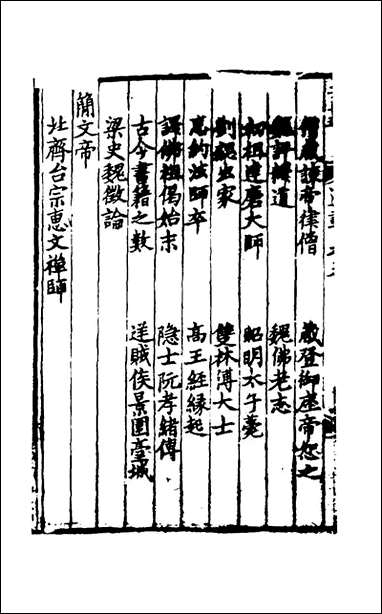 智藏諫帝律僧 藏登御座帝恕之
魏評釋道 魏佛老志
初祖達磨大師 昭明太子薨
劉勰出家 雙林傅大士
惠約法師卒 高王經緣起
譯佛祖偈始末 隐士阮孝緒傳
古今書籍之数 逆賊侯景圍臺城
梁史魏徵論
簡文帝
北齊台宗惠文禪師